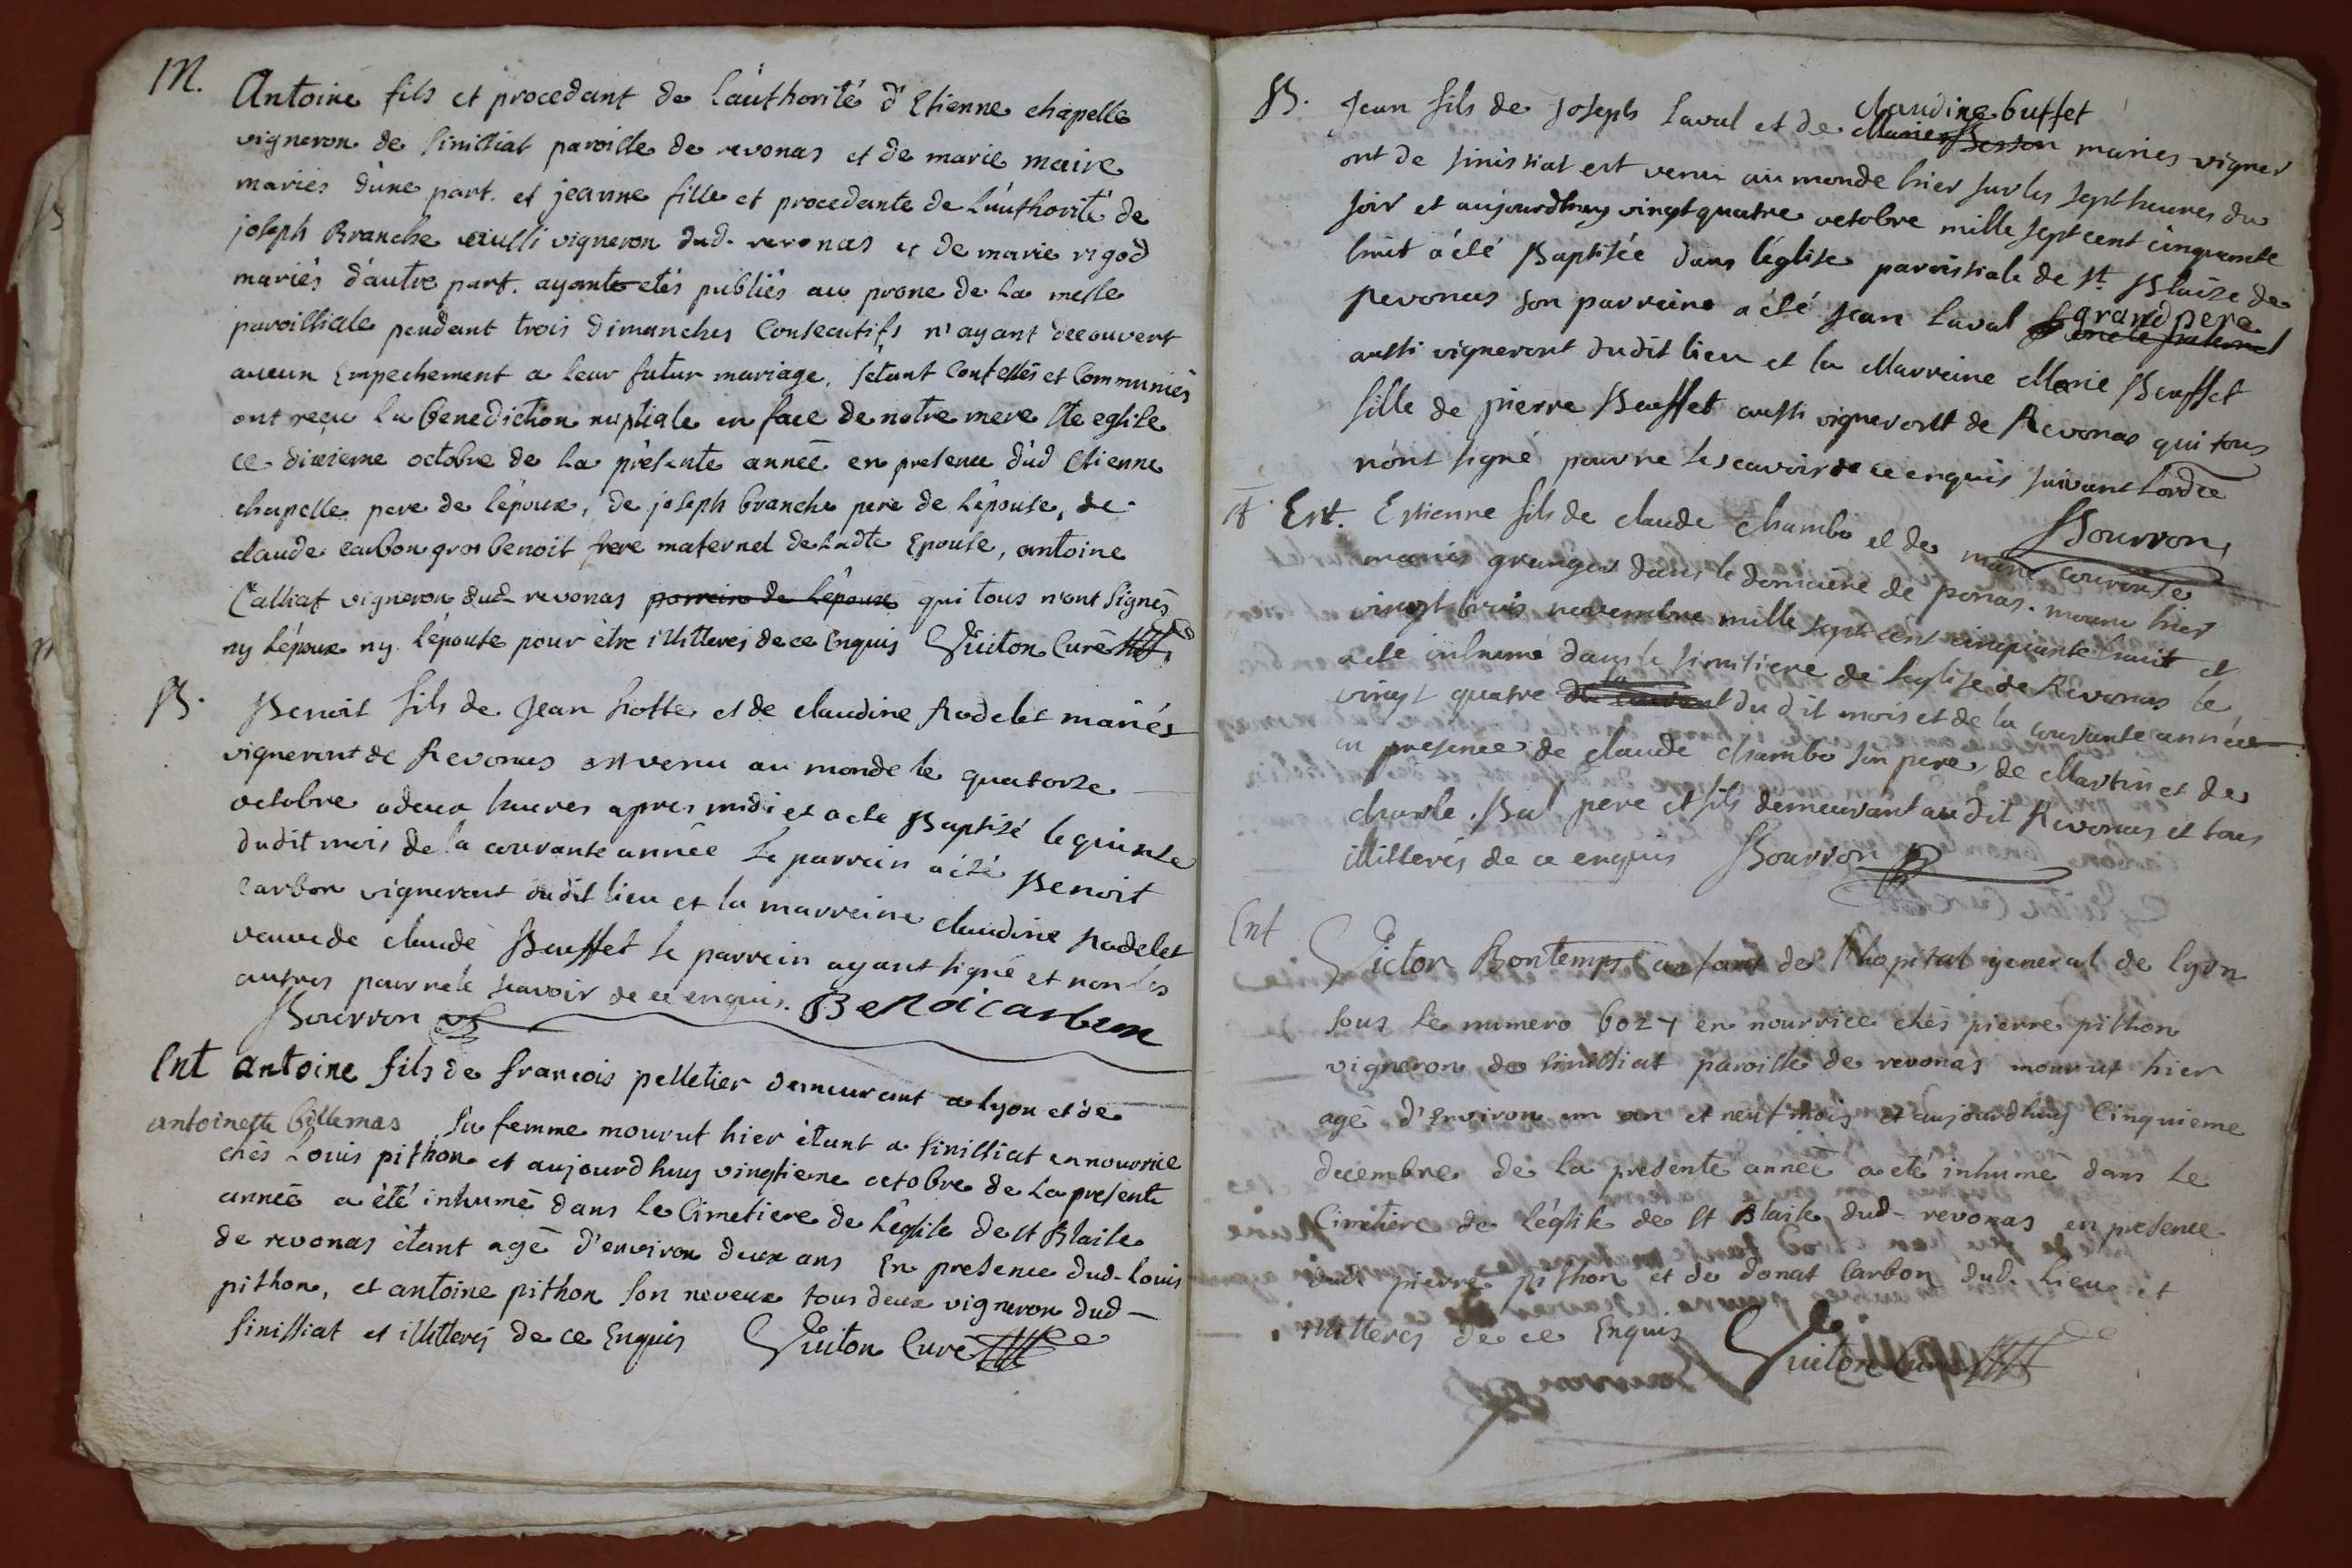 M. Antoine fils et procedant de l'authorité d'Etienne chapelle
vigneron de sinissiat paroisse de revonas et de marie maire
mariés d'une part. et jeanne fille et procedante de l'authorité de
joseph Branche aussi vigneron dud. revonas et de marie rigod
mariés d'autre part. ayante etés publiés au prone de la messe
paroissiale pendant trois dimanches consecutifs n'ayant decouvert
aucun Empechement a leur futur mariage, s'etant confessés et communiés
ont reçu la benediction nuptiale en face de notre mere ste eglise
ce dixieme octobre de la présente année en presence dud Etienne
chapelle pere de l'époux, de joseph branche pere de l'épouse, de
claude carbon gros benoit frere maternel de ladte Epouse, antoine
Calliat vigneron dud revonas parrein de l'épouse qui tous n'ont signés
ny l'époux ny l'épouse pour être illitterés de ce Enquis Guiton Curé
B. Benoit fils de Jean hotte et de claudine Rodelet mariés
vigneront de Revonas est venu au monde le quatorze
octobre a deux heures apres midi et a ete Baptisé le quinze
dudit mois de la courante année le parrein a été Benoit
carbon vigneront dudit lieu et la marreine claudine Rodelet
veuve de claude Beuffet le parrein ayant signé et non les
autres pour ne le scavoir de ce enquis. Benoi carbon
Bourron
Ent antoine fils de francois pelletier demeurant a lyon et de
antoinette billemas sa femme mourut hier étant a sinissiat en nourrice
chés Louis pithon et aujourdhuy vingtieme octobre de la presente
année a été inhumé dans le Cimetiere de l'église de st Blaise
de revonas étant agé d'environ deux ans En presence dud. Louis
pithon, et antoine pithon son neveux tous deux vigneron dud
sinissiat et illitterés de ce Enquis Guiton Curé
B. Jean fils de Joseph Laval et de Marie Besson claudine buffet mariés vigner
ont de sinissiat est venu au monde hier sur les sept heures du
soir et aujourdhuy vingt quatre octobre mille sept cent cinquante
huit a été Baptisée dans l'église parroissiale de St Blaize de
revonas son parreine a été Jean Laval oncle paternel grand pere
aussi vigneront dudit lieu et la Marreine Marie Beuffet
fille de pierre Beuffet aussi vigneront de Revonas qui tous
n'ont signé pour ne le scavoir de ce enquis suivant l'ordce
Bourron
Ent. Estienne fils de claude chambo et de marie
mariés granger dans le domaine de ponas. mouru hier
vingt trois novembre mille sept cent cinquante huit et
a ete inhumé dans le simitiere de l'eglise de Revonas le
vingt quatre du courant dudit mois et de la courante année
en presence de claude chambo son pere, de Martin et de
charle Bal pere et fils demeurant audit Revonas et tous
illitterés de ce enquis Bourron
Ent Victor Bontemps enfant de l'hopital general de lyon
sous le numero 6024 en nourrice chés pierre pithon
vigneron de sinissiat paroisse de revonas mourut hier
agé d'environ un an et neuf mois et aujourdhuy Cinquieme
decembre de la presente année a eté inhumé dans le
Cimetiere de l'église de st Blaise dud. revonas en presence
dud. pierre pithon et de donat Carbon dud. lieu et
illitterés de ce Enquis Guiton Curé